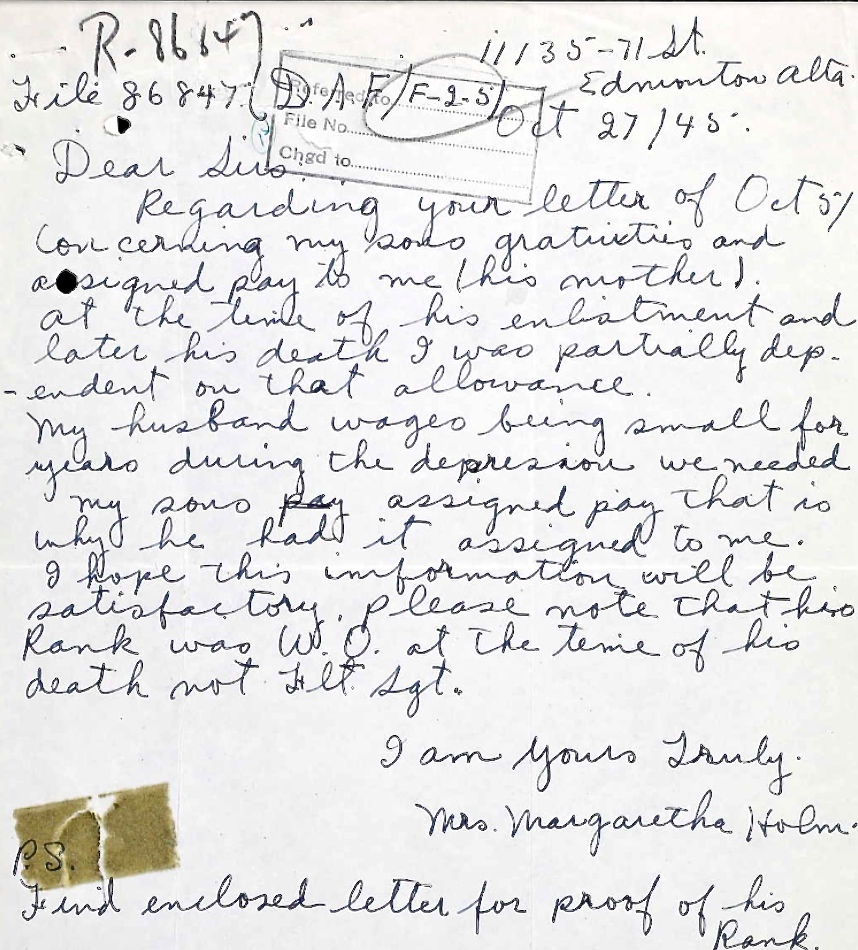 R-86847
11135-71 St.
Edmonton Alta.
File 86847 (D.A.F/F-2-5)
Referred to
File No.
Chgd to
Oct 27/45.
Dear Sirs
Regarding your letter of Oct 5/
Concerning my sons gratuities and
assigned pay to me (his mother).
at the time of his enlistment and
later his death I was partially dep-
-endent on that allowance.
My husband wages being small for
years during the depression we needed
my sons pay assigned pay that is
why he had it assigned to me.
I hope this information will be
satisfactory. please note that his
Rank was W.O. at the time of his
death not Flt. Sgt.
I am Yours Truly.
Mrs. Margaretha Holm.
P.S.
Find enclosed letter for proof of his
Rank.